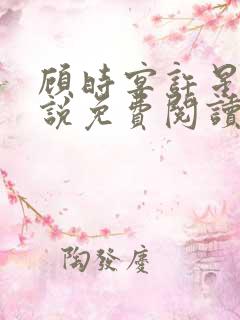 顾時宴許星
說免費閱讀
陶發慶